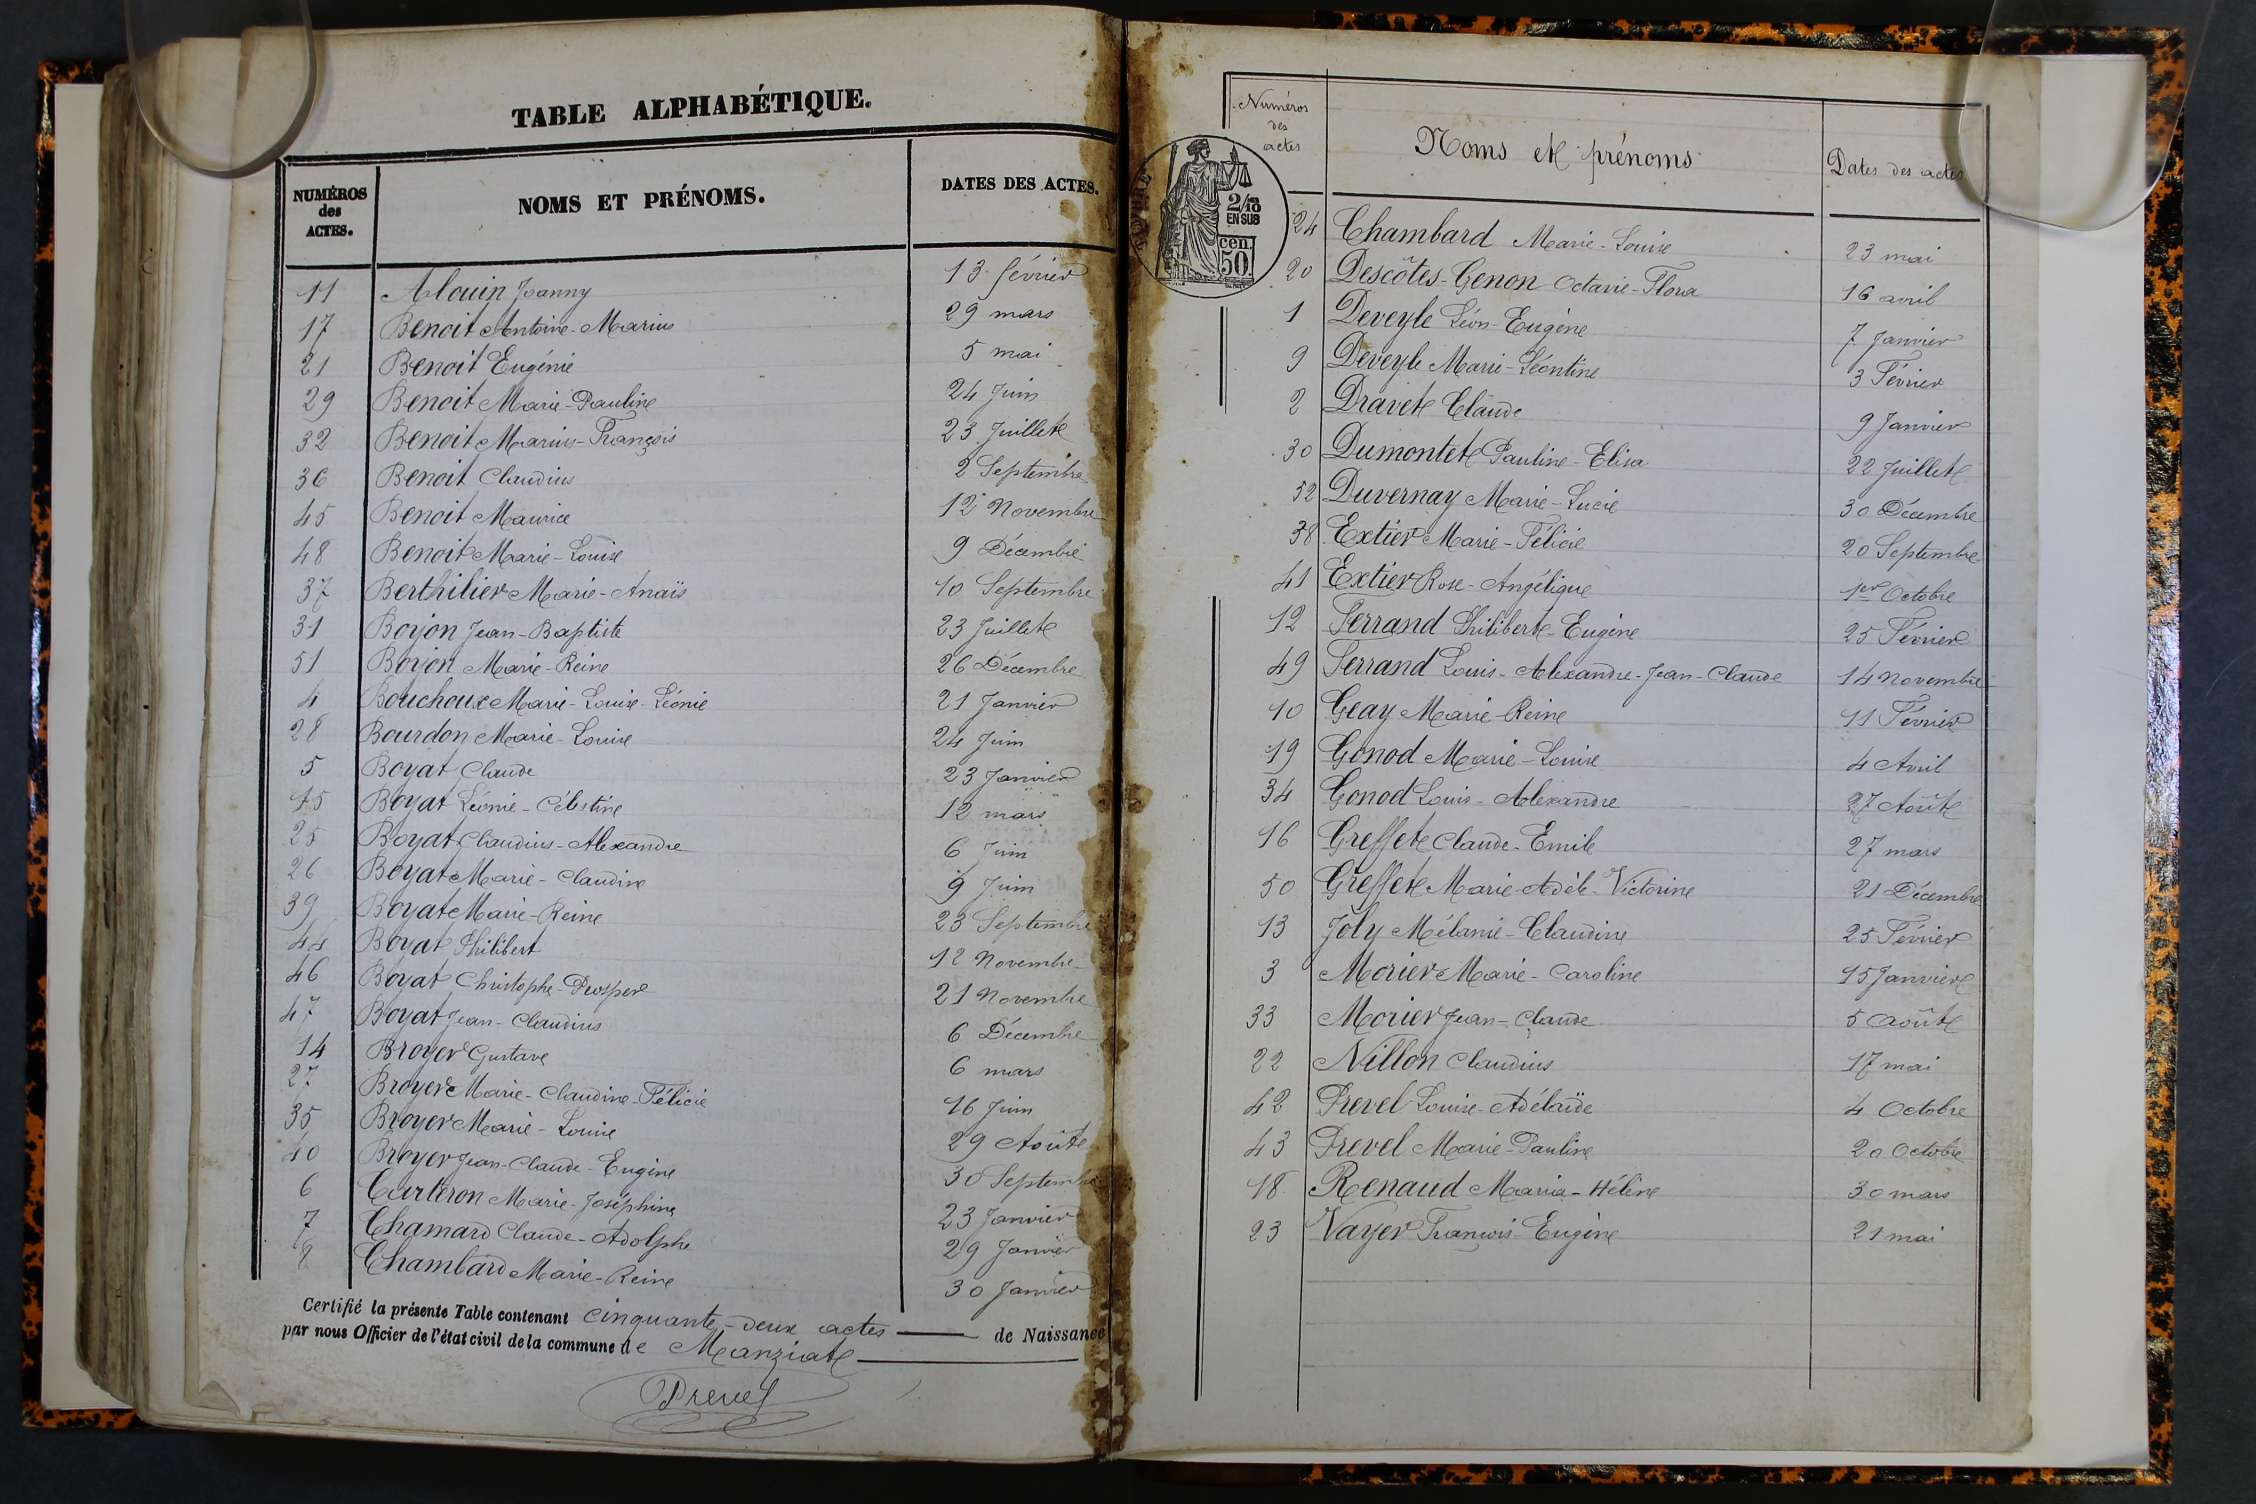 TABLE ALPHABÉTIQUE.
NUMÉROS des ACTES. NOMS ET PRÉNOMS. DATES DES ACTES.
11 Alouin Joanny 13 février
17 Benoit Antoine-Marius 29 mars
21 Benoit Eugénie 5 mai
29 Benoit Marie-Pauline 24 Juin
32 Benoit Marius-François 23 Juillet
36 Benoit Claudius 2 Septembre
45 Benoit Maurice 12 Novembre
48 Benoit Marie-Louise 9 Décembre
37 Berthilier Marie-Anaïs 10 Septembre
31 Boyon Jean-Baptiste 23 Juillet
51 Boyon Marie-Reine 26 Décembre
4 Bouchoux Marie-Louise-Léonie 21 Janvier
28 Bourdon Marie-Louise 24 Juin
5 Boyat Claude 23 Janvier
15 Boyat Léonie-Célestine 12 mars
25 Boyat Claudius-Alexandre 6 Juin
26 Boyat Marie-Claudine 9 Juin
39 Boyat Marie-Reine 23 Septembre
44 Boyat Philibert 12 Novembre
46 Boyat Christophe-Prosper 21 Novembre
47 Boyat Jean-Claudius 6 Décembre
14 Broyer Gustave 6 mars
27 Broyer Marie-Claudine-Félicie 16 Juin
35 Broyer Marie-Louise 29 Août
40 Broyer Jean-Claude-Eugène 30 Septembre
6 Carteron Marie-Joséphine 23 Janvier
7 Chamard Claude-Adolphe 29 Janvier
8 Chambard Marie-Reine 30 Janvier
Certifié la présente Table contenant cinquante-deux actes de Naissance
par nous Officier de l'état civil de la commune de Manziat
Prevel
2/10
EN SUS
50 cen.
Numéros des actes Noms et prénoms Dates des actes
24 Chambard Marie-Louise 23 mai
20 Descôtes-Genon Octavie-Flora 16 avril
1 Deveyle Léon-Eugène 7 Janvier
9 Deveyle Marie-Léontine 3 Février
2 Dravet Claude 9 Janvier
30 Dumontet Pauline-Elisa 22 Juillet
52 Duvernay Marie-Lucie 30 Décembre
38 Extier Marie-Félicie 20 Septembre
41 Extier Rose-Angélique 1er Octobre
12 Ferrand Philibert-Eugène 25 Février
49 Ferrand Louis-Alexandre-Jean-Claude 14 novembre
10 Geay Marie-Reine 11 Février
19 Gonod Marie-Louise 4 Avril
34 Gonod Louis-Alexandre 27 Août
16 Greffet Claude-Emile 27 mars
50 Greffet Marie-Adèle-Victorine 21 Décembre
13 Joly Mélanie-Claudine 25 Février
3 Morier Marie-Caroline 15 Janvier
33 Morier Jean-Claude 5 août
22 Nillon Claudius 17 mai
42 Prevel Louise-Adélaïde 4 Octobre
43 Prevel Marie-Pauline 20 Octobre
18 Renaud Maria-Hélène 30 mars
23 Vayer François-Eugène 21 mai